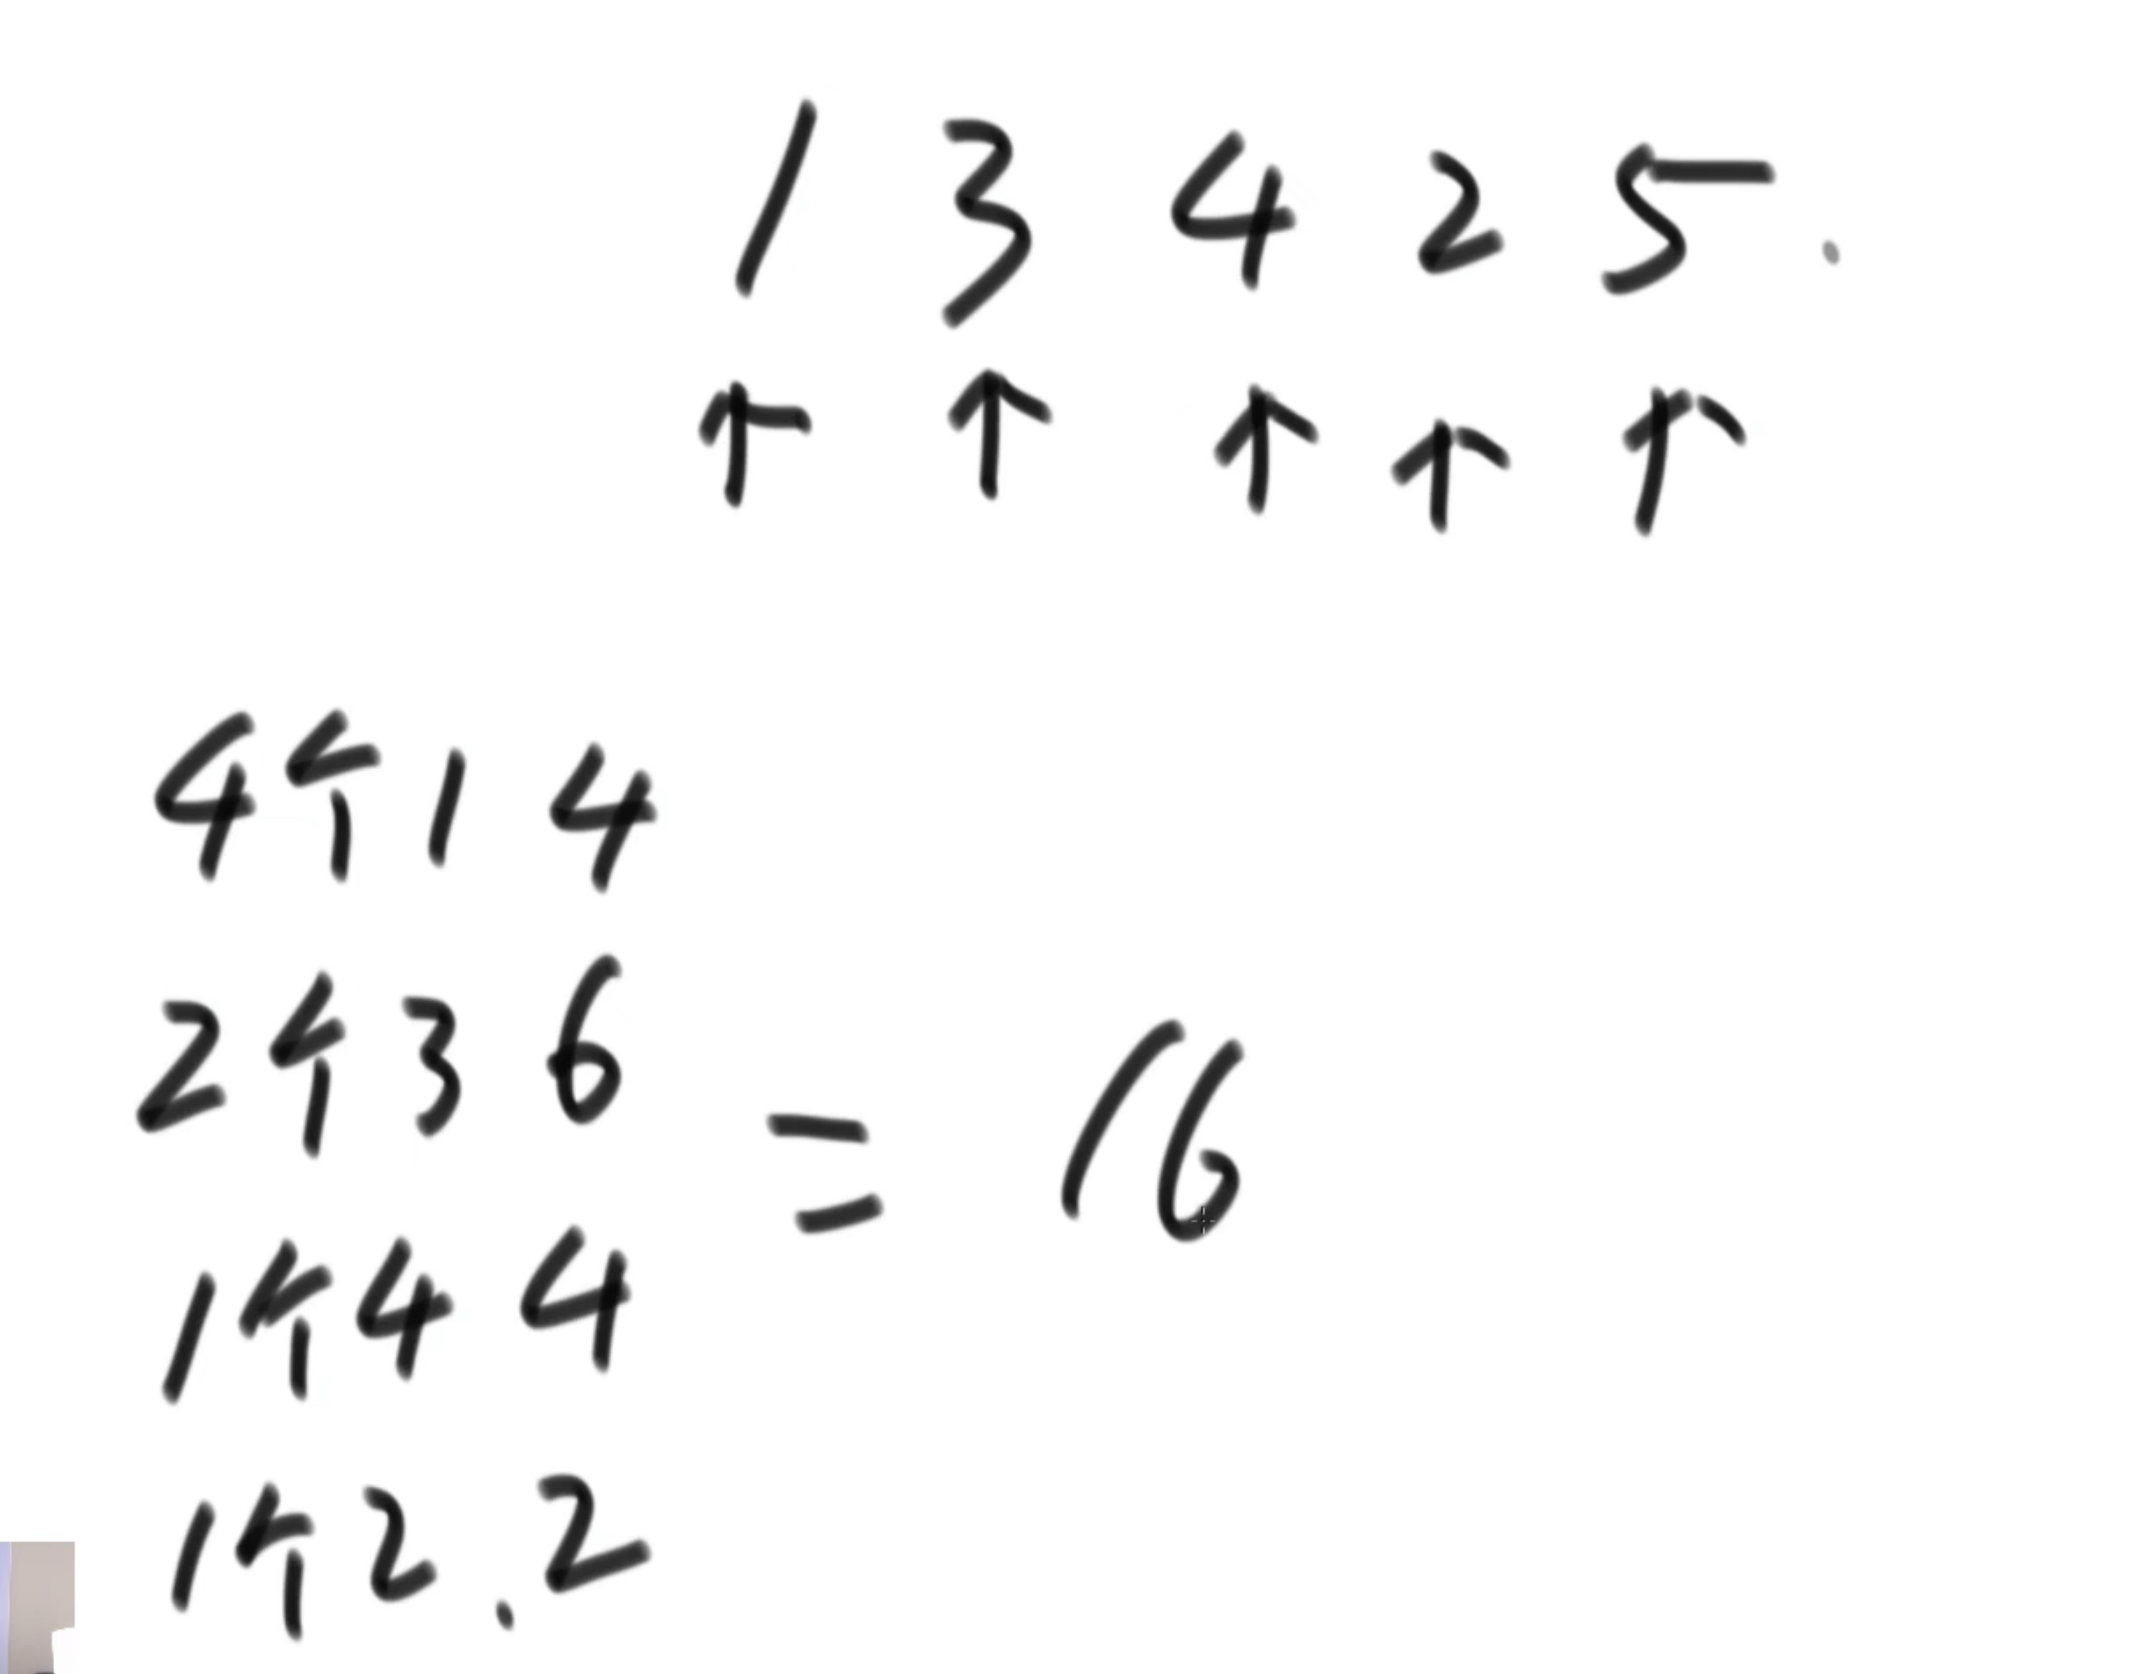 1 3 4 2 5.
↑ ↑ ↑ ↑ ↑
4个1 4
2个3 6
= 16
1个4 4
1个2. 2